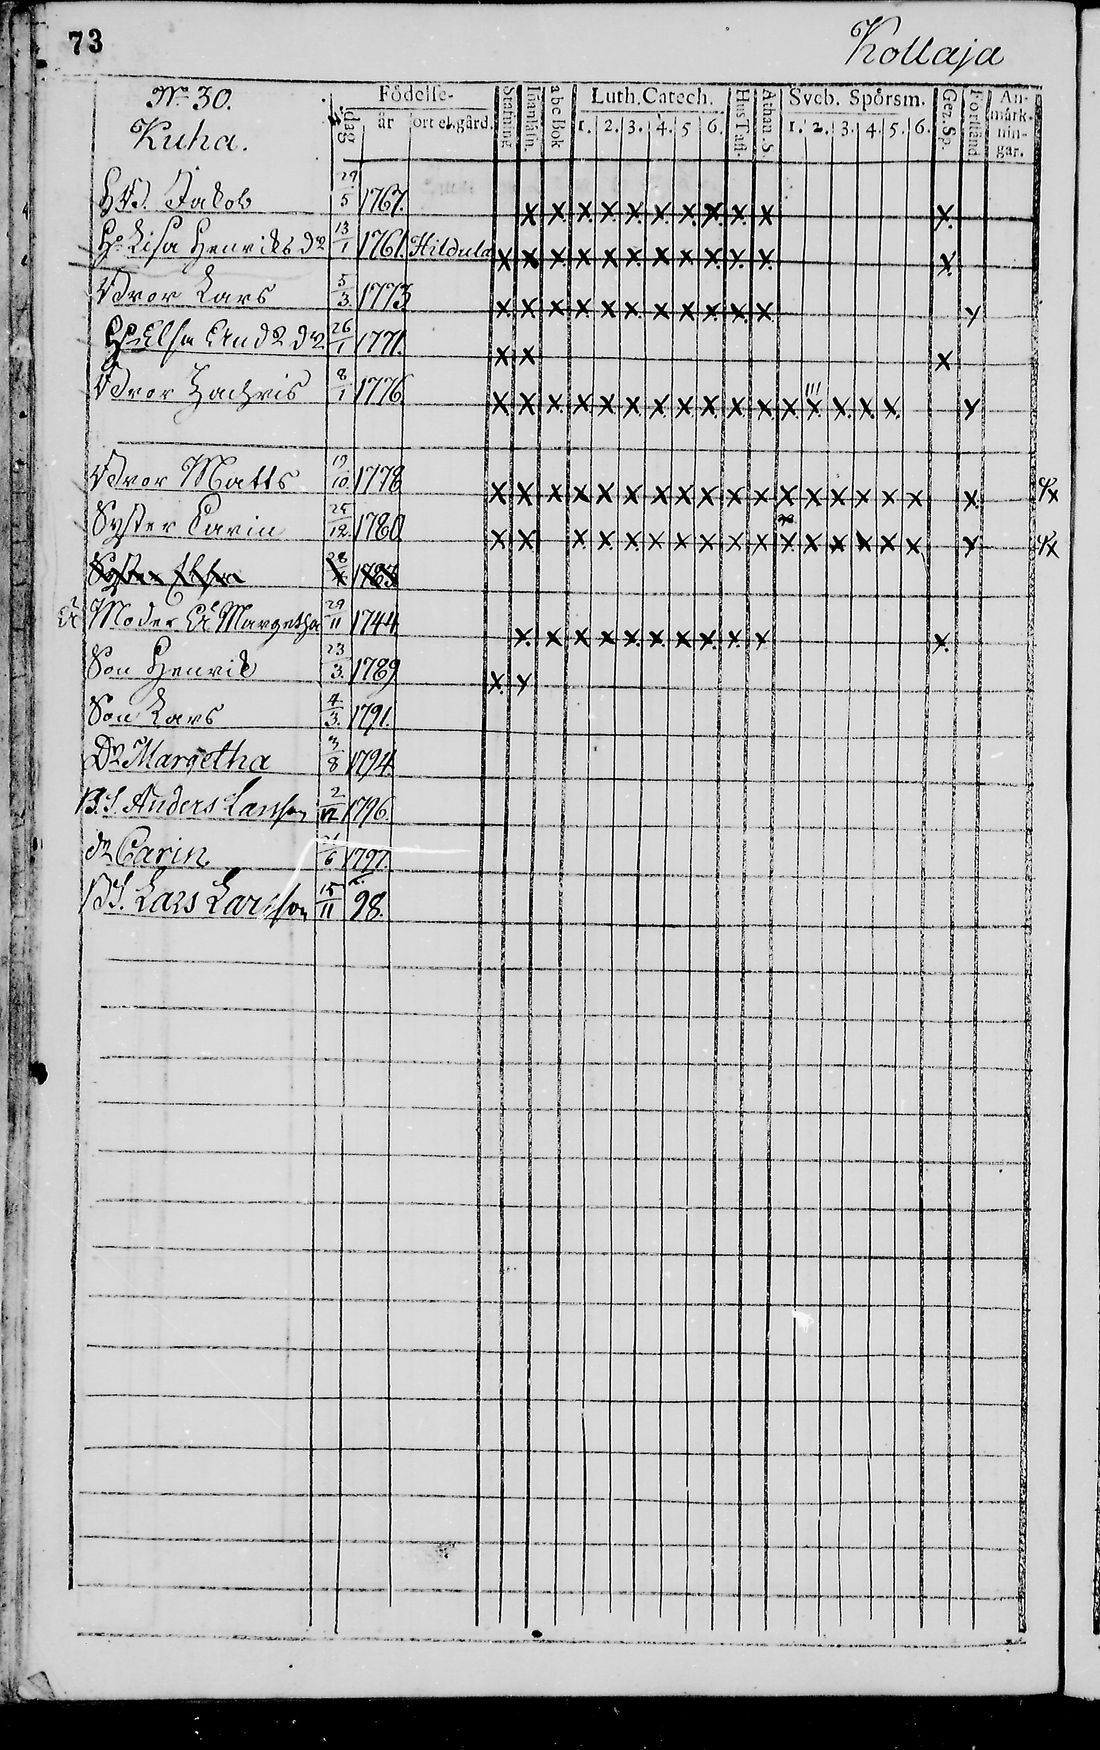 73
Kollaja
No 30.
Kuha.
Födelse-
dag
år
ort el. gård.
Stafning
Innanläsn.
abc Bok
Luth. Catech.
1. 2. 3. 4. 5 6.
Hus Tafl.
Athan. S.
Sveb. Spörsm.
1. 2. 3. 4. 5. 6.
Gez. Sp.
Förstånd
An-
märk-
nin-
gar.
Jakob 29/5 1767. x x x x x x x x x x x
Hu Lisa Henriks dr 13/1 1761. Hildula x x x x x x x x x x x x
Lars 5/3. 1773 x x x x x x x x x x x y
Hu Elsa And. dr 26/1 1771. x x x
Zachris 8/1 1776 x x x x x x x x x x x x x x x x y
Matts 19/10. 1778 x x x x x x x x x x x x x x x x x x
Syster Carin 25/12. 1780 x x x x x x x x x x x x x x x x y
Syster 28 1783
Moder Margetha 29/11 1744 x x x x x x x x x x x
Son Henrik 23/3. 1789 x y
Son Lars 4/3. 1791.
Dr Margetha 3/8 1794.
B.S. Anders Larsson 2/12 1796.
dr Carin 6 1797.
BS. Lars Larsson 15/11 98.